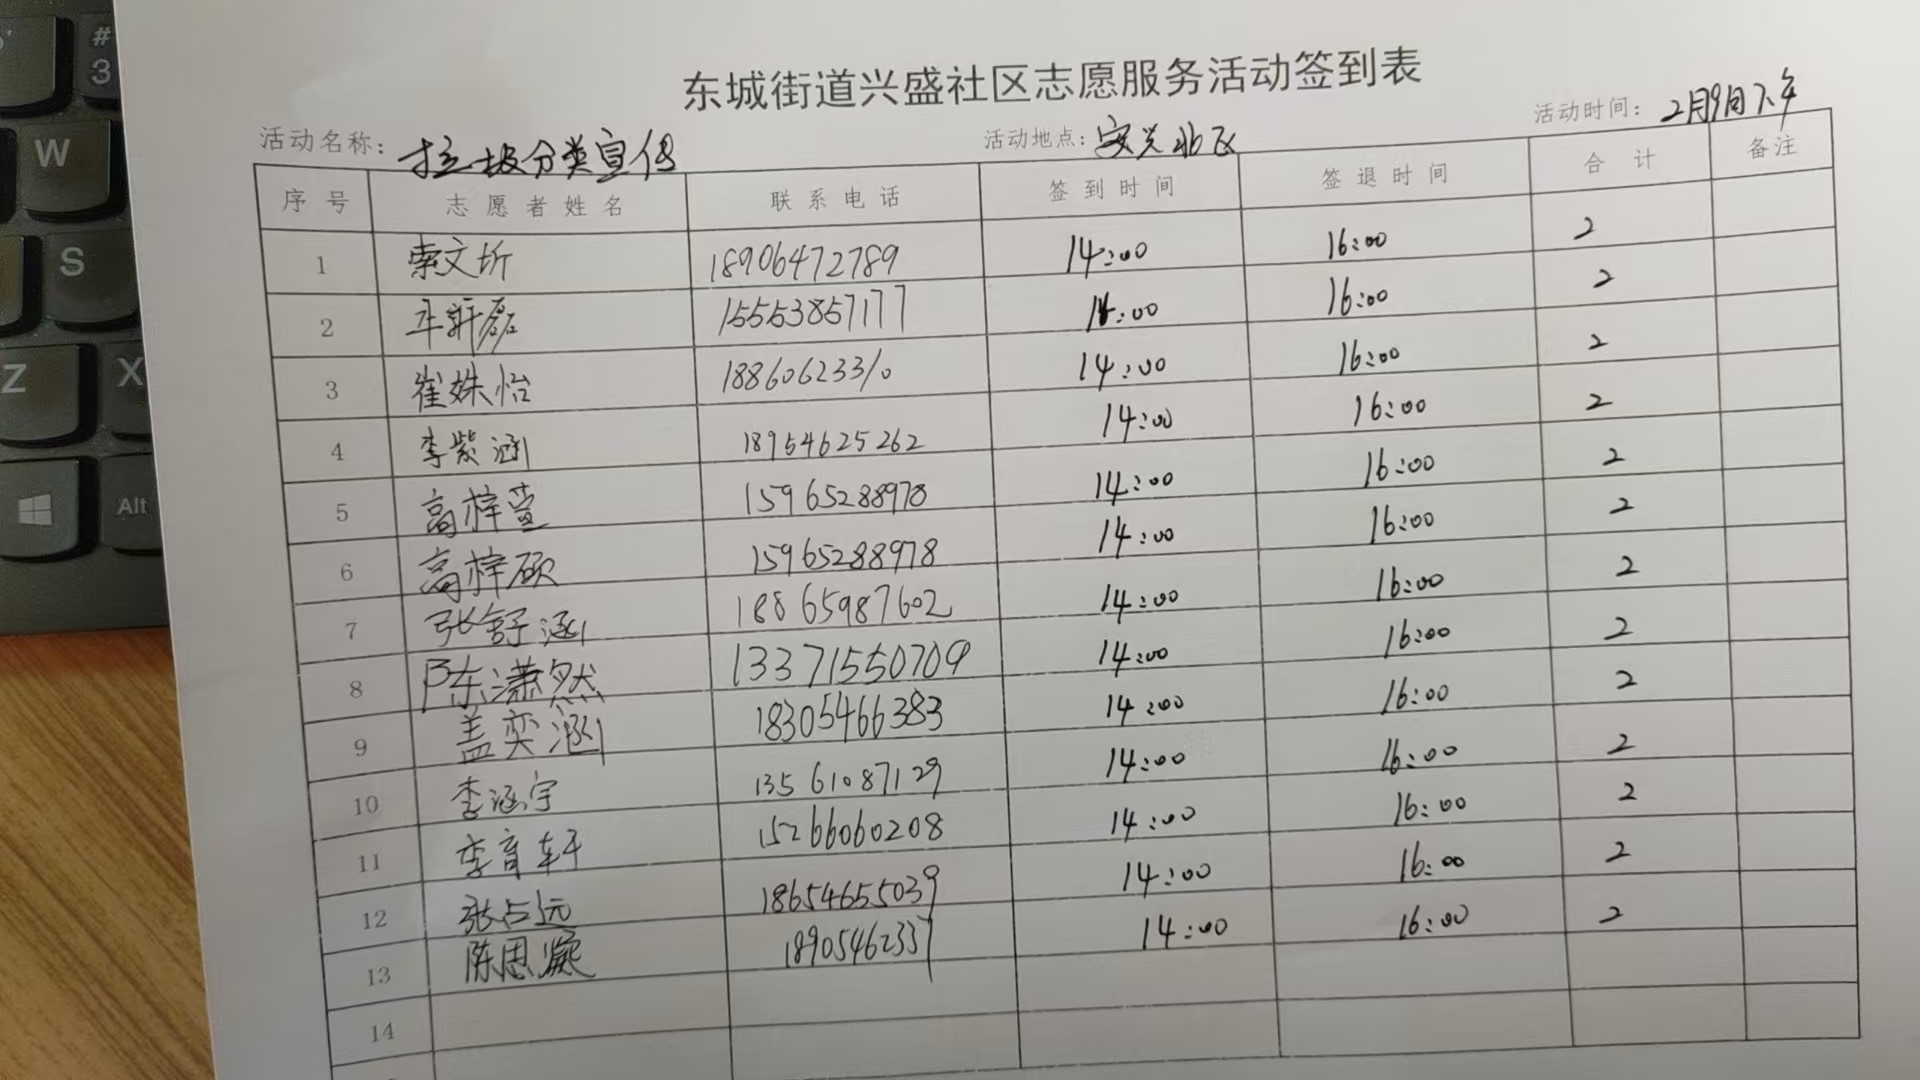 东城街道兴盛社区志愿服务活动签到表
活动名称: 垃圾分类宣传 活动地点: 安兴北区 活动时间: 2月9日下午
序号 志愿者姓名 联系电话 签到时间 签退时间 合计 备注
1 索文圻 18906472789 14:00 16:00 2
2 王轩磊 15553857177 14:00 16:00 2
3 崔姝怡 18860623310 14:00 16:00 2
4 李紫涵 18954625262 14:00 16:00 2
5 高梓萱 15965288978 14:00 16:00 2
6 高梓硕 15965288978 14:00 16:00 2
7 张舒涵 18865987602 14:00 16:00 2
8 陈潇然 13371550709 14:00 16:00 2
9 盖奕涵 18305466383 14:00 16:00 2
10 李涵宇 13561087129 14:00 16:00 2
11 李育轩 15266060208 14:00 16:00 2
12 张占远 18654655039 14:00 16:00 2
13 陈思凝 18905462337 14:00 16:00 2
14
# 3
W
S
Z X
Alt